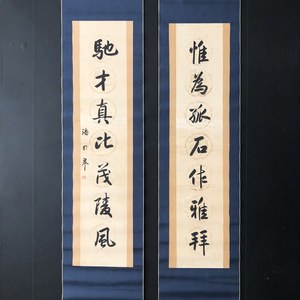 惟為孤石作雅拜
馳才真比茂陵風